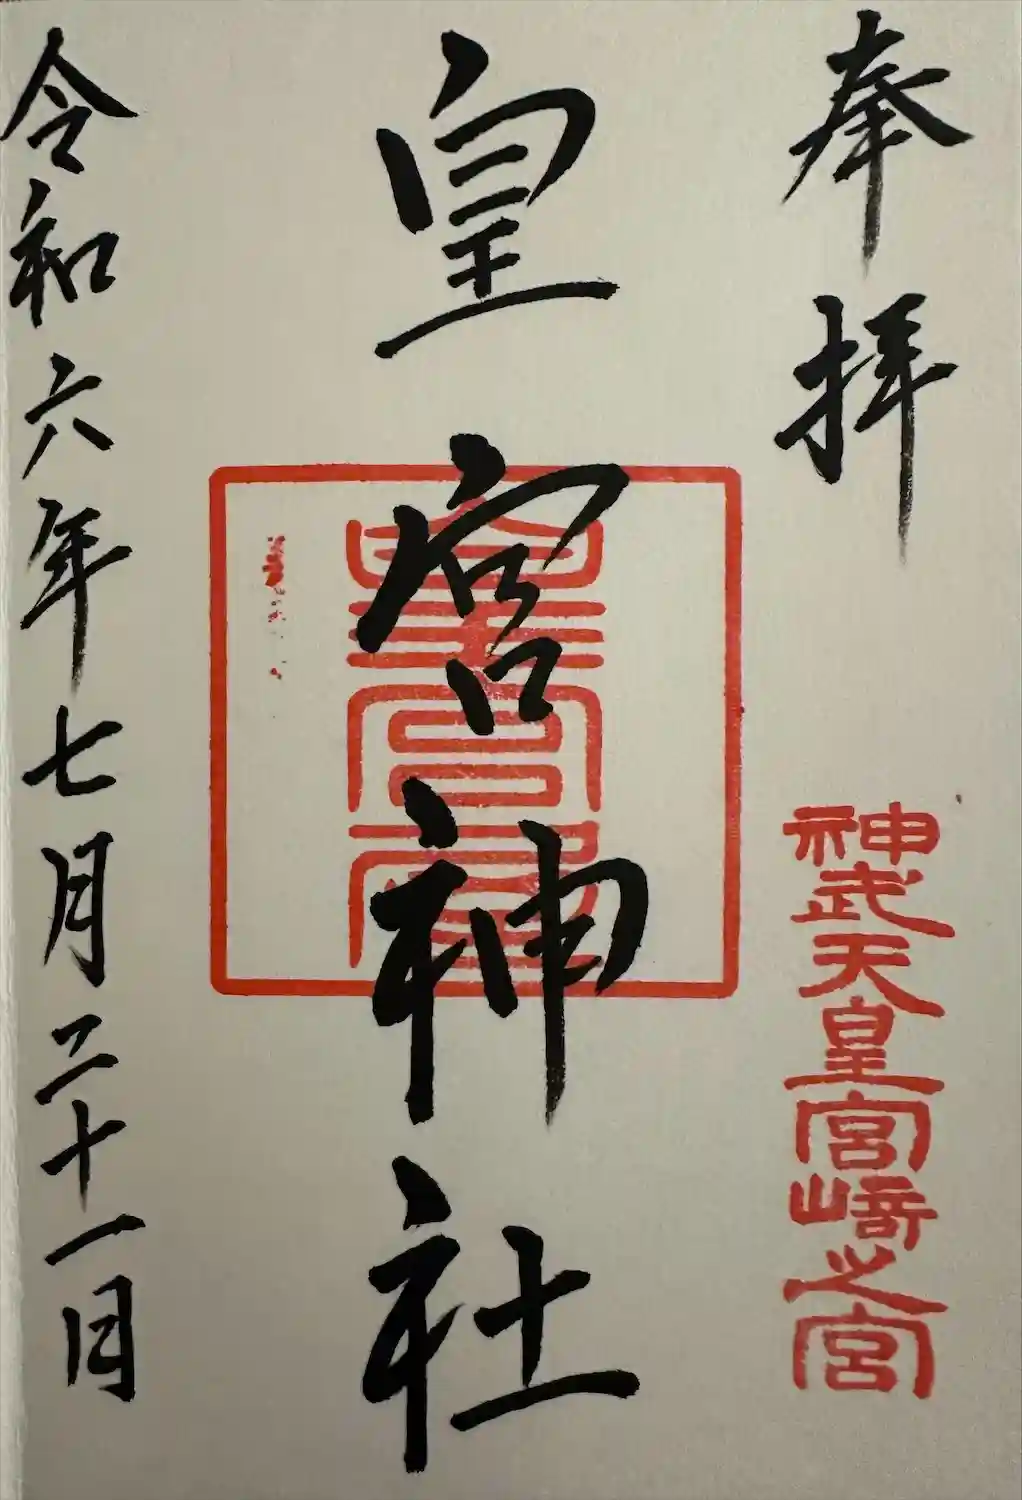 奉拝
神武天皇宮崎之宮
皇宮神社
皇宮
令和六年七月二十一日